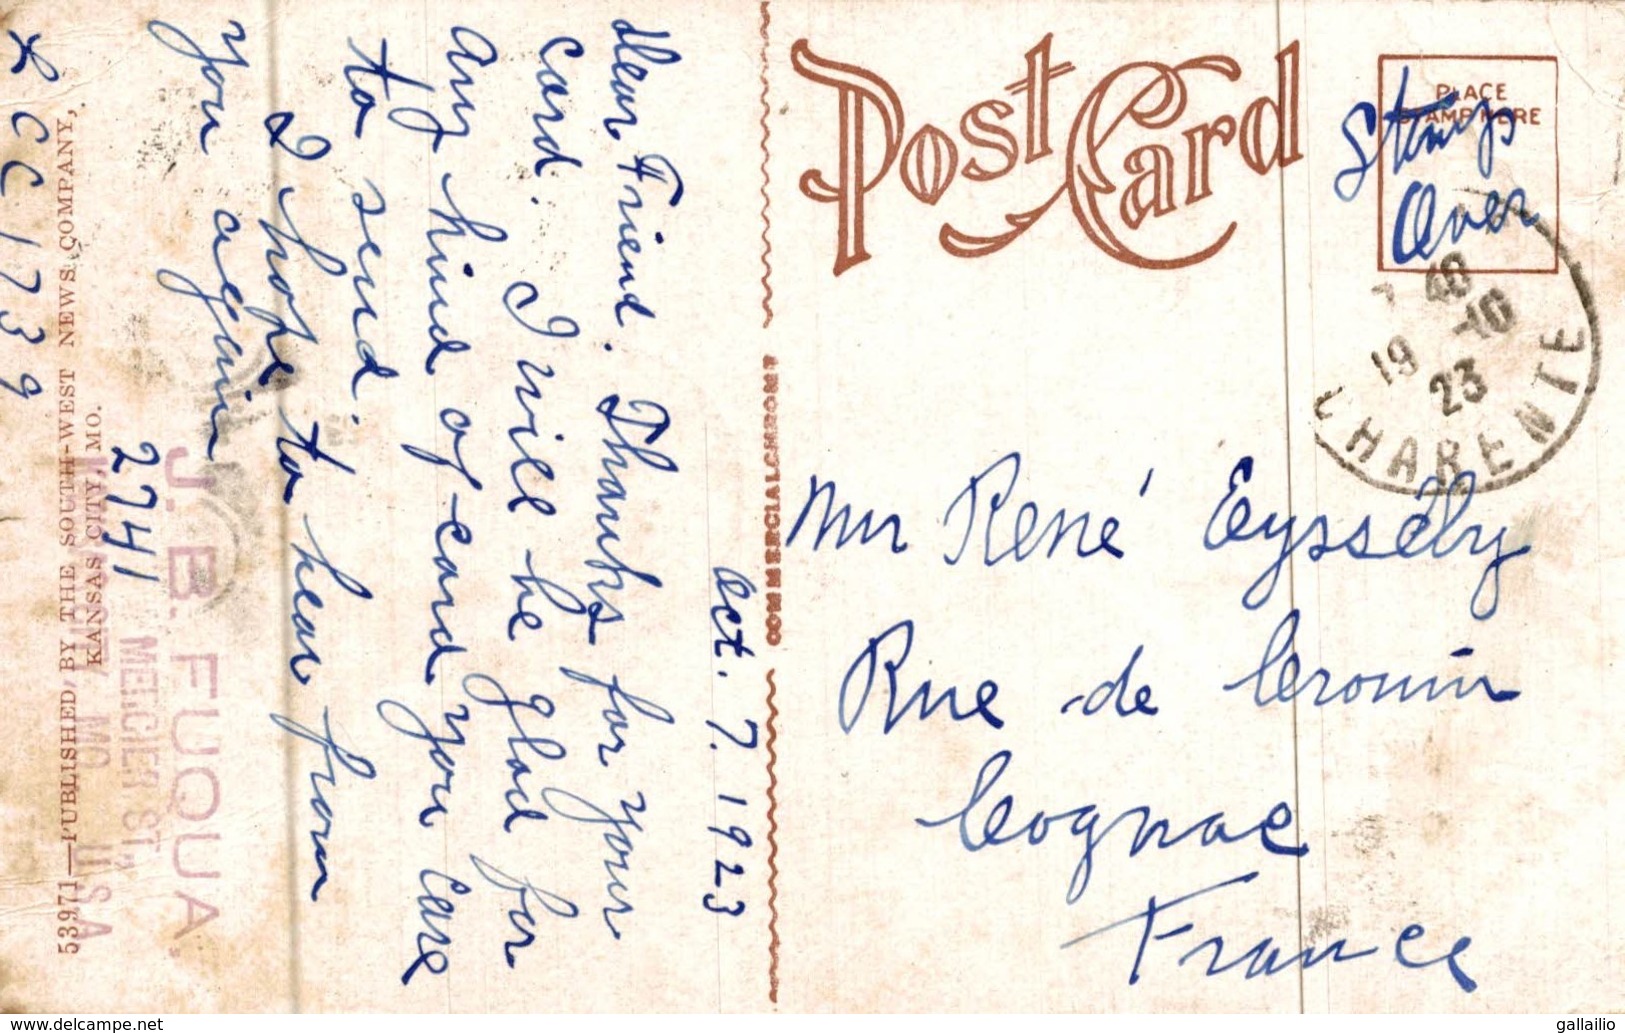 Post Card
PLACE
STAMP HERE
Stamps
Over
19 40
-10
23
CHARENTE
Oct. 7. 1923
Dear Friend. Thanks for your
Card. I will be glad for
any kind of card you care
to send.
I hope to hear from
you again
J. B. FUQUA,
2741 MELCIER ST.,
KANSAS CITY, MO. U.S.A
53971—PUBLISHED BY THE SOUTH-WEST NEWS COMPANY,
KANSAS CITY, MO.
LCC 1739
COMMERCIALCHROME
Mr René
Rue de
Cognac
France
delcampe.net
gallailio